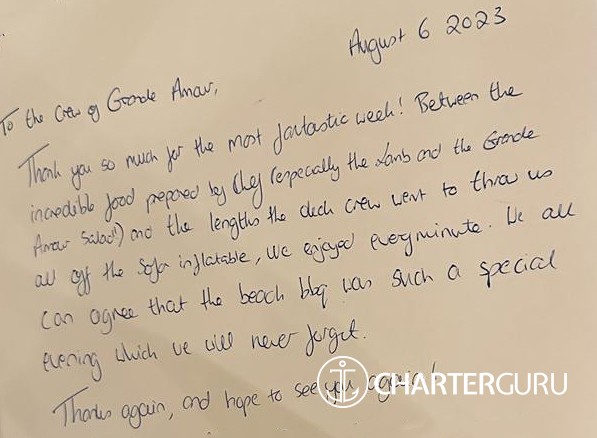 August 6 2023
To the Crew of Grande Amour,
Thank you so much for the most fantastic week! Between the
incredible food prepared by Chef (especially the Lamb and the Grande
Amour Salad!) and the lengths the deck crew went to throw us
all off the sofa inflatable, we enjoyed every minute. We all
can agree that the beach bbq was such a special
evening which we will never forget.
Thanks again, and hope to see you again!
CHARTERGURU